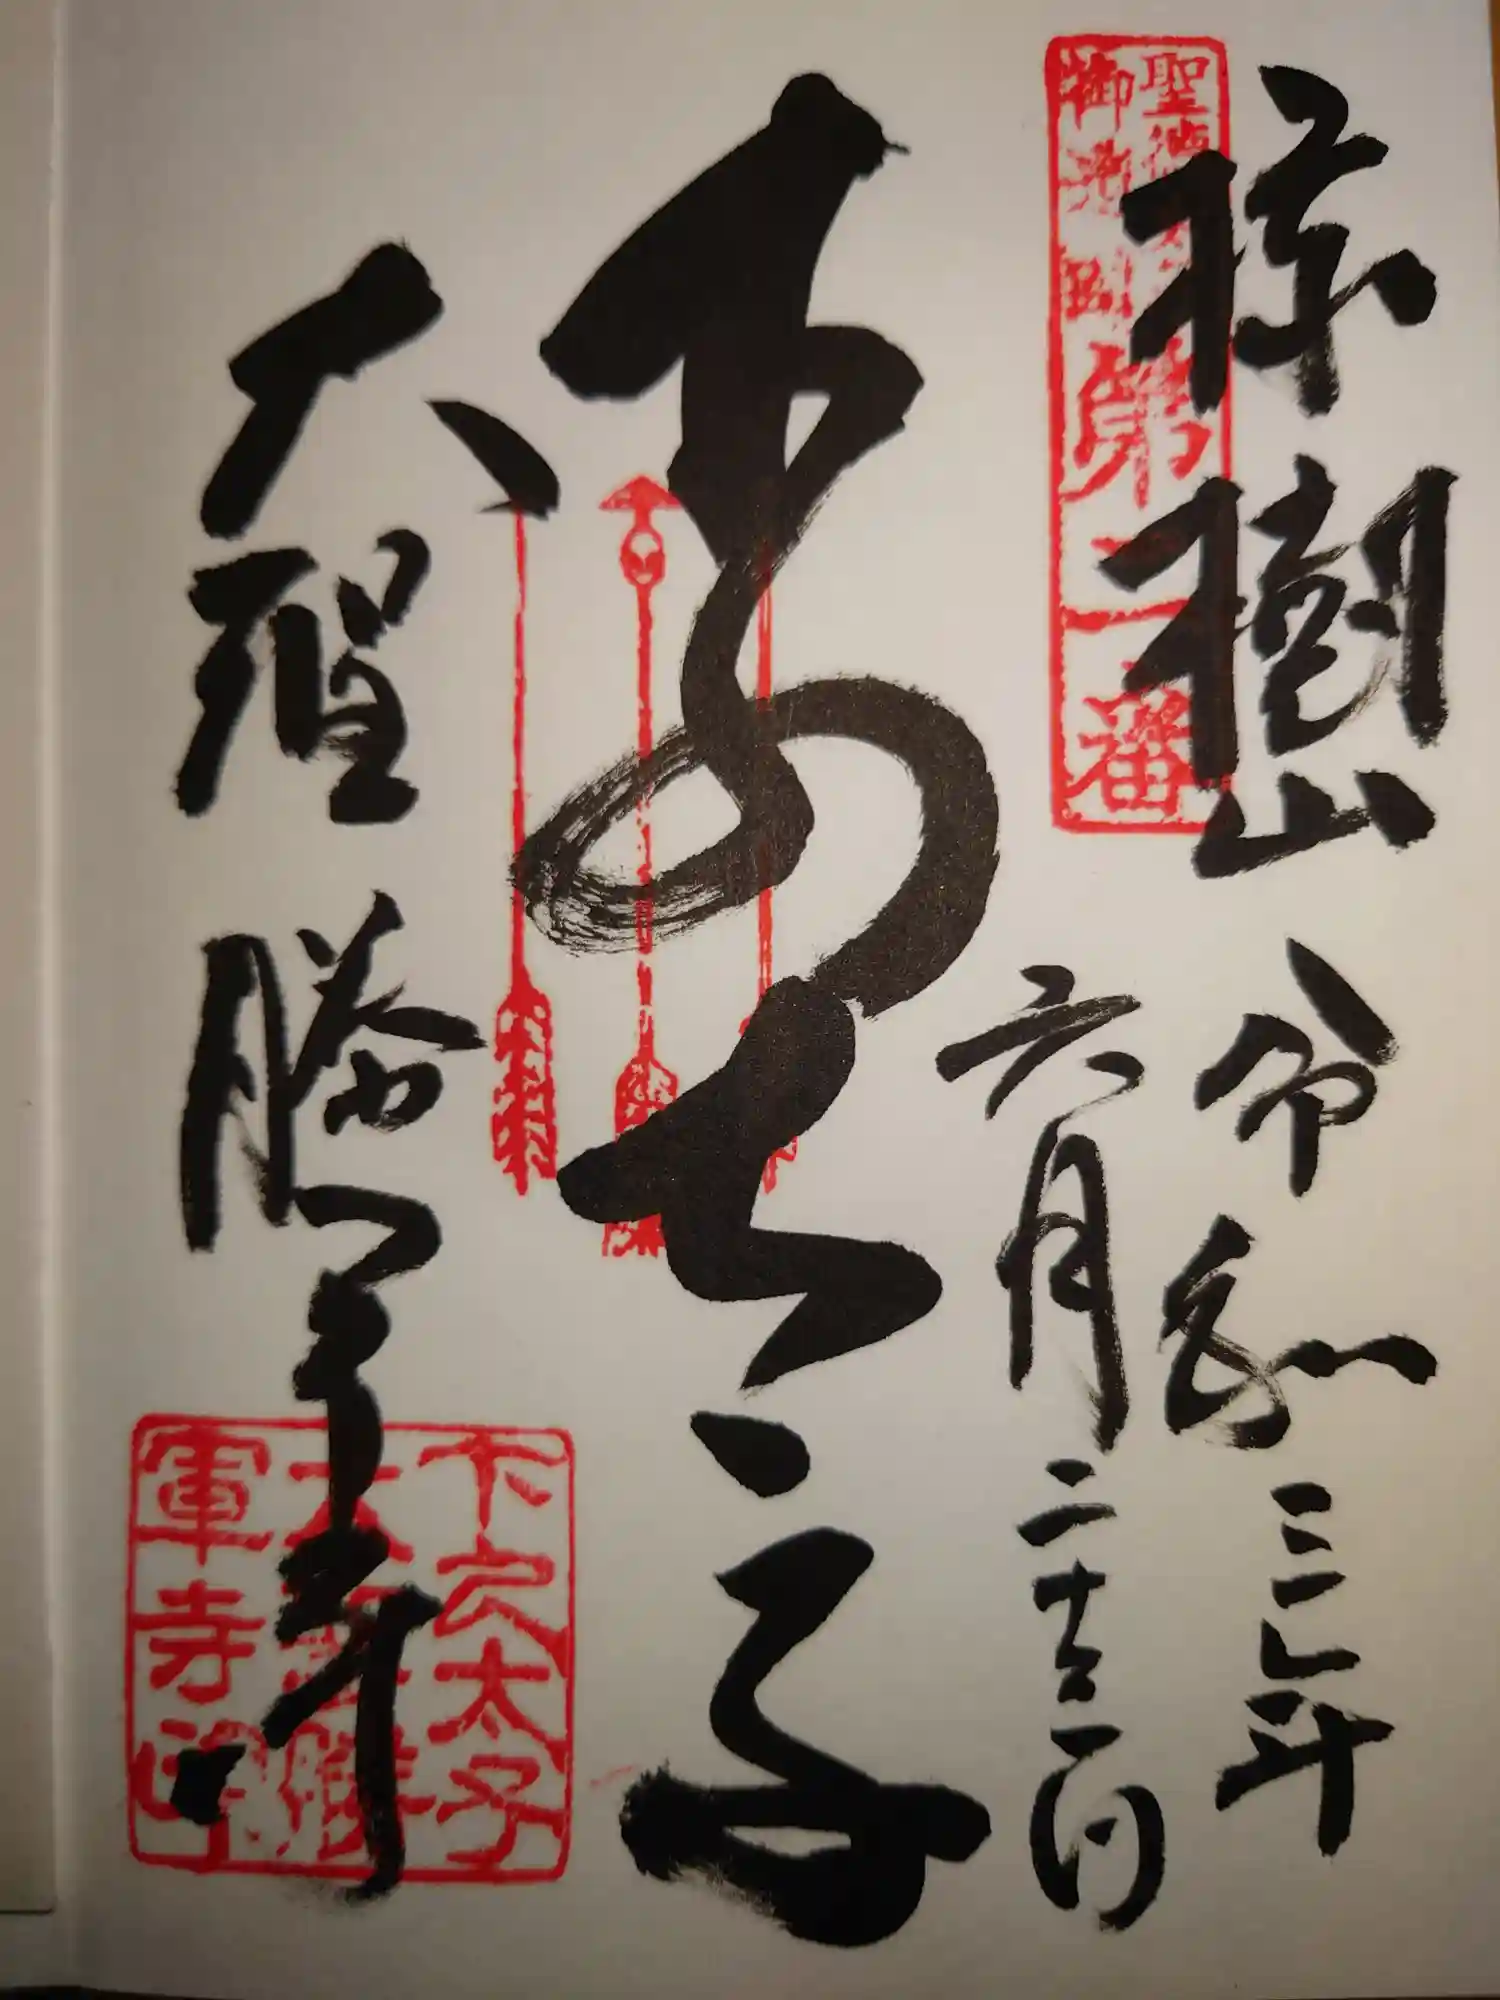 椋樹山
令和三年
六月二十三日
聖徳
御遺跡
第二番
太子
大聖勝軍寺
下之太子
大聖勝
軍寺印